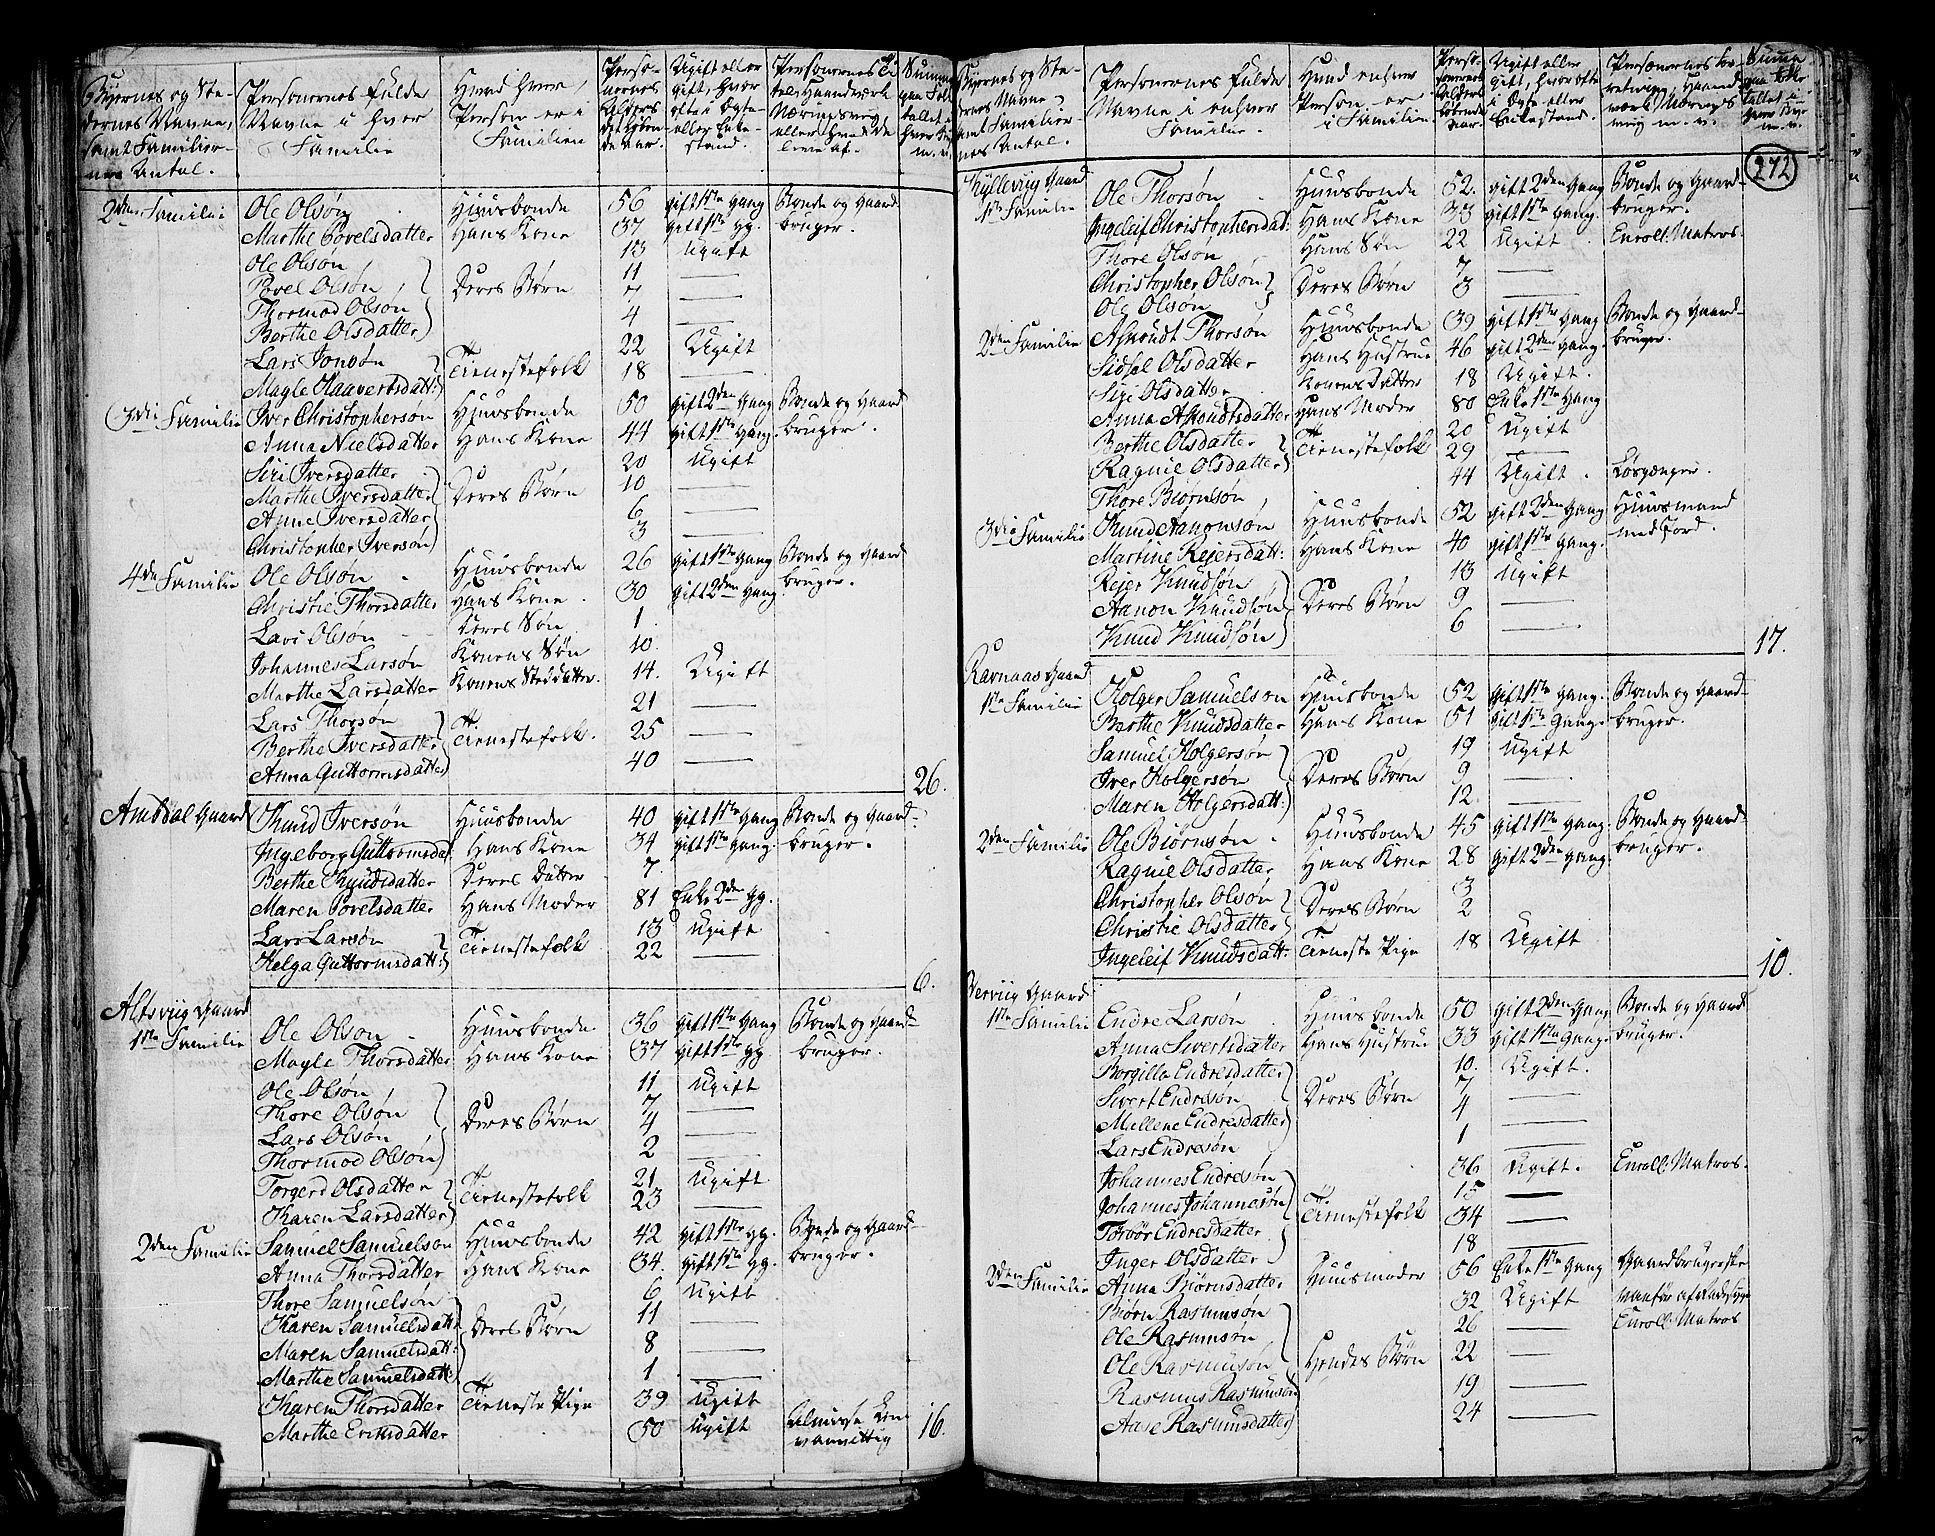 Byernes og Ste- Personernes fulde Hvad hver Perso- Ugift eller Personernes Ti- Summa
dernes Navne, Navne i hver Person er i nernes gift, hvor tel, Haandværk
samt Familier- Familie Familien Alders ofte i Ægte- Næringsvej
nes Antal. eller Enke- eller hvad de
stand. leve af.
2den Familie Ole Olsøn Huusbonde 56 gift 1ste Gang Bonde og Gaard
Marthe Povelsdatter Hans Kone 37 gift 1ste Gg. bruger.
Ole Olsøn 13 Ugift
Povel Olsøn Deres Børn 11
Thormod Olsøn 7
Berthe Olsdatter 4
Lars Jonsøn Tienestefolk 22 Ugift
Magle Haavertsdatt: 18
3die Familie Iver Christophersøn Huusbonde 50 gift 2den Gang Bonde og Gaard
Anna Nielsdatter Hans Kone 44 gift 1ste Gang. bruger.
Siri Iversdatter 20 Ugift
Marthe Iversdatter Deres Børn 10
Anne Iversdatter 6
Christopher Iversøn 3
4de Familie Ole Olsøn Huusbonde 26 gift 1ste Gang Bonde og Gaard
Christie Thorsdatter Hans Kone 30 gift 2den Gang. bruger.
Lars Olsøn Deres Søn 1
Johannes Larsøn Konens Søn 10.
Marthe Larsdatter Konens Steddatter. 14. Ugift
Lars Thorsøn 21
Berthe Iversdatter Tienestefolk. 25
Anna Guttormsdatter 40
26.
Amdal Gaard Knud Iversøn Huusbonde 40 gift 1ste Gang Bonde og Gaard-
Ingeborg Guttormsdat Hans Kone 34 gift 1ste Gang. bruger.
Berthe Knudsdatter Deres Datter 7.
Maren Povelsdatter Hans Moder 81 Enke 2den Gg.
Lars Larsøn Tienestefolk 13 Ugift
Helga Guttormsdatt: 22
6.
Altsviig Gaard
1ste Familie Ole Olsøn Huusbonde 36 gift 1ste Gang Bonde og Gaard-
Magle Thorsdatter Hans Kone 37 gift 1ste Gg. bruger.
Ole Olsøn 11 Ugift
Thore Olsøn Deres Børn 7
Lars Olsøn 4
Thormod Olsøn 2
Torgerd Olsdatter Tienestefolk 21 Ugift
Karen Larsdatter 23
2den Familie Samuel Samuelsøn Huusbonde 42 gift 1ste Gg. Bonde og Gaard-
Anna Thorsdatter Hans Kone 34. gift 1ste Gg. bruger.
Thore Samuelsøn 6 Ugift
Karen Samuelsdatt Deres Børn 11
Maren Samuelsdatt: 8
Marthe Samuelsdatt: 1
Karen Thorsdatter Tieneste Pige 39 Ugift
Marthe Eriksdatter 50 Ugift Almisse Lem vanvittig
16.
Byernes og Ste- Personernes fulde Hvad enhver
dernes Navne Navne i enhver Person er
samt Familier- Familie. i Familien
nes Antal.
272
Kyllevüg Gaard
1ste Familie Ole Thorsøn Huusbonde 52. gift 2den Gang Bonde og Gaard-
Ingeleif Christophersdat: Hans Kone 33 gift 1ste Gang. bruger.
Thore Olsøn Hans Søn 22 Ugift Enroll: Matros.
Christopher Olsøn Deres Børn 7
Ole Olsøn 3
2den Familie Asoudt Thorsøn Huusbonde 39 gift 1ste Gang Bonde og Gaard-
Sidsel Olsdatter Hans Hustrue 46 gift 2den Gang. bruger.
Siri Olsdatter Konens Datter 18 Ugift.
Anna Asoudtsdatter Hans Moder 80 Enke 1ste Gang
Berthe Olsdatter Tienestefolk 20 Ugift
Ragnie Olsdatter 29
Thore Biørnsøn 44 Ugift. Løsgænger.
3die Familie Knud Aanonsøn Huusbonde 52 gift 2den Gang Huusmand
Martine Reiersdatt: Hans Kone 40 gift 1ste Gang. med Jord.
Reier Knudsøn 13 Ugift
Aanon Knudsøn Deres Børn 9
Knud Knudsøn 6
17.
Ravnaas Gaard
1ste Familie Holger Samuelsøn Huusbonde 52 gift 1ste Gang. Bonde og Gaard-
Berthe Knudsdatter Hans Kone 51 gift 1ste Gang. bruger.
Samuel Holgersøn 19 Ugift
Iver Holgersøn Deres Børn 9
Maren Holgersdatt: 12.
2den Familie Ole Biørnsøn Huusbonde 45 gift 1ste Gang. Bonde og Gaard-
Ragnie Olsdatter Hans Kone 28 gift 2den Gang. bruger.
Christopher Olsøn Deres Børn 3
Christie Olsdatter 2
Ingeleif Knudsdatt: Tieneste Pige 18 Ugift
10.
Berviig Gaard
1ste Familie Endre Larsøn Huusbonde 50 gift 2den Gang Bonde og Gaard
Anna Sivertsdatter Hans Hustrue 33 gift 1ste Gang. bruger.
Borgilla Endresdatter 10. Ugift.
Sivert Endresøn Deres Børn 7
Millene Endresdatter 4
Lars Endresøn 1
Johannes Endresøn 36 Ugift. Enroll: Matros.
Johannes Johannesøn Tienestefolk 15
Torbor Endresdatter 34
Inger Olsdatter 18
2den Familie Anna Biørnsdatter Huusmoder 56 Enke 1ste Gang Gaardbrugerske
Biørn Rasmusøn 32 Ugift
Ole Rasmusøn 26 Enroll: Matros
Ole Rasmusøn Hendes Børn 22
Rasmus Rasmusøn 19
Aase Rasmusdatter 24